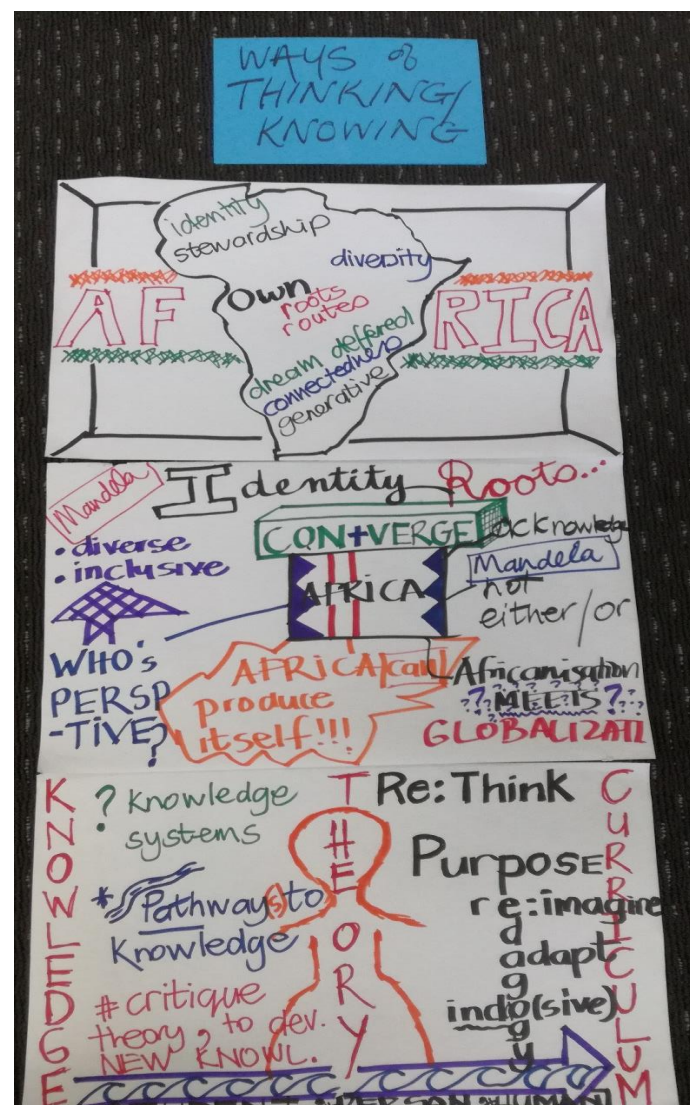 WAYS of
THINKING/
KNOWING
identity
stewardship
diversity
AFRICA
Own
roots
routes
dream deffered
connectedness
generative
Mandela
Identity Roots...
• diverse
• inclusive
CON+VERGE
acknowledge
Mandela
not
either/or
AFRICA
WHO'S
PERSP
-TIVE?
AFRICA (can)
produce
itself!!!
Africanisation
???MEETS???
GLOBALIZATI
KNOWLEDGE
? Knowledge
systems
* Pathway(s) to
Knowledge
# critique
theory, to dev.
NEW KNOWL.
THEORY
Re: Think
Purpose
re:imagine
adapt
pedagogy
CURRICULUM